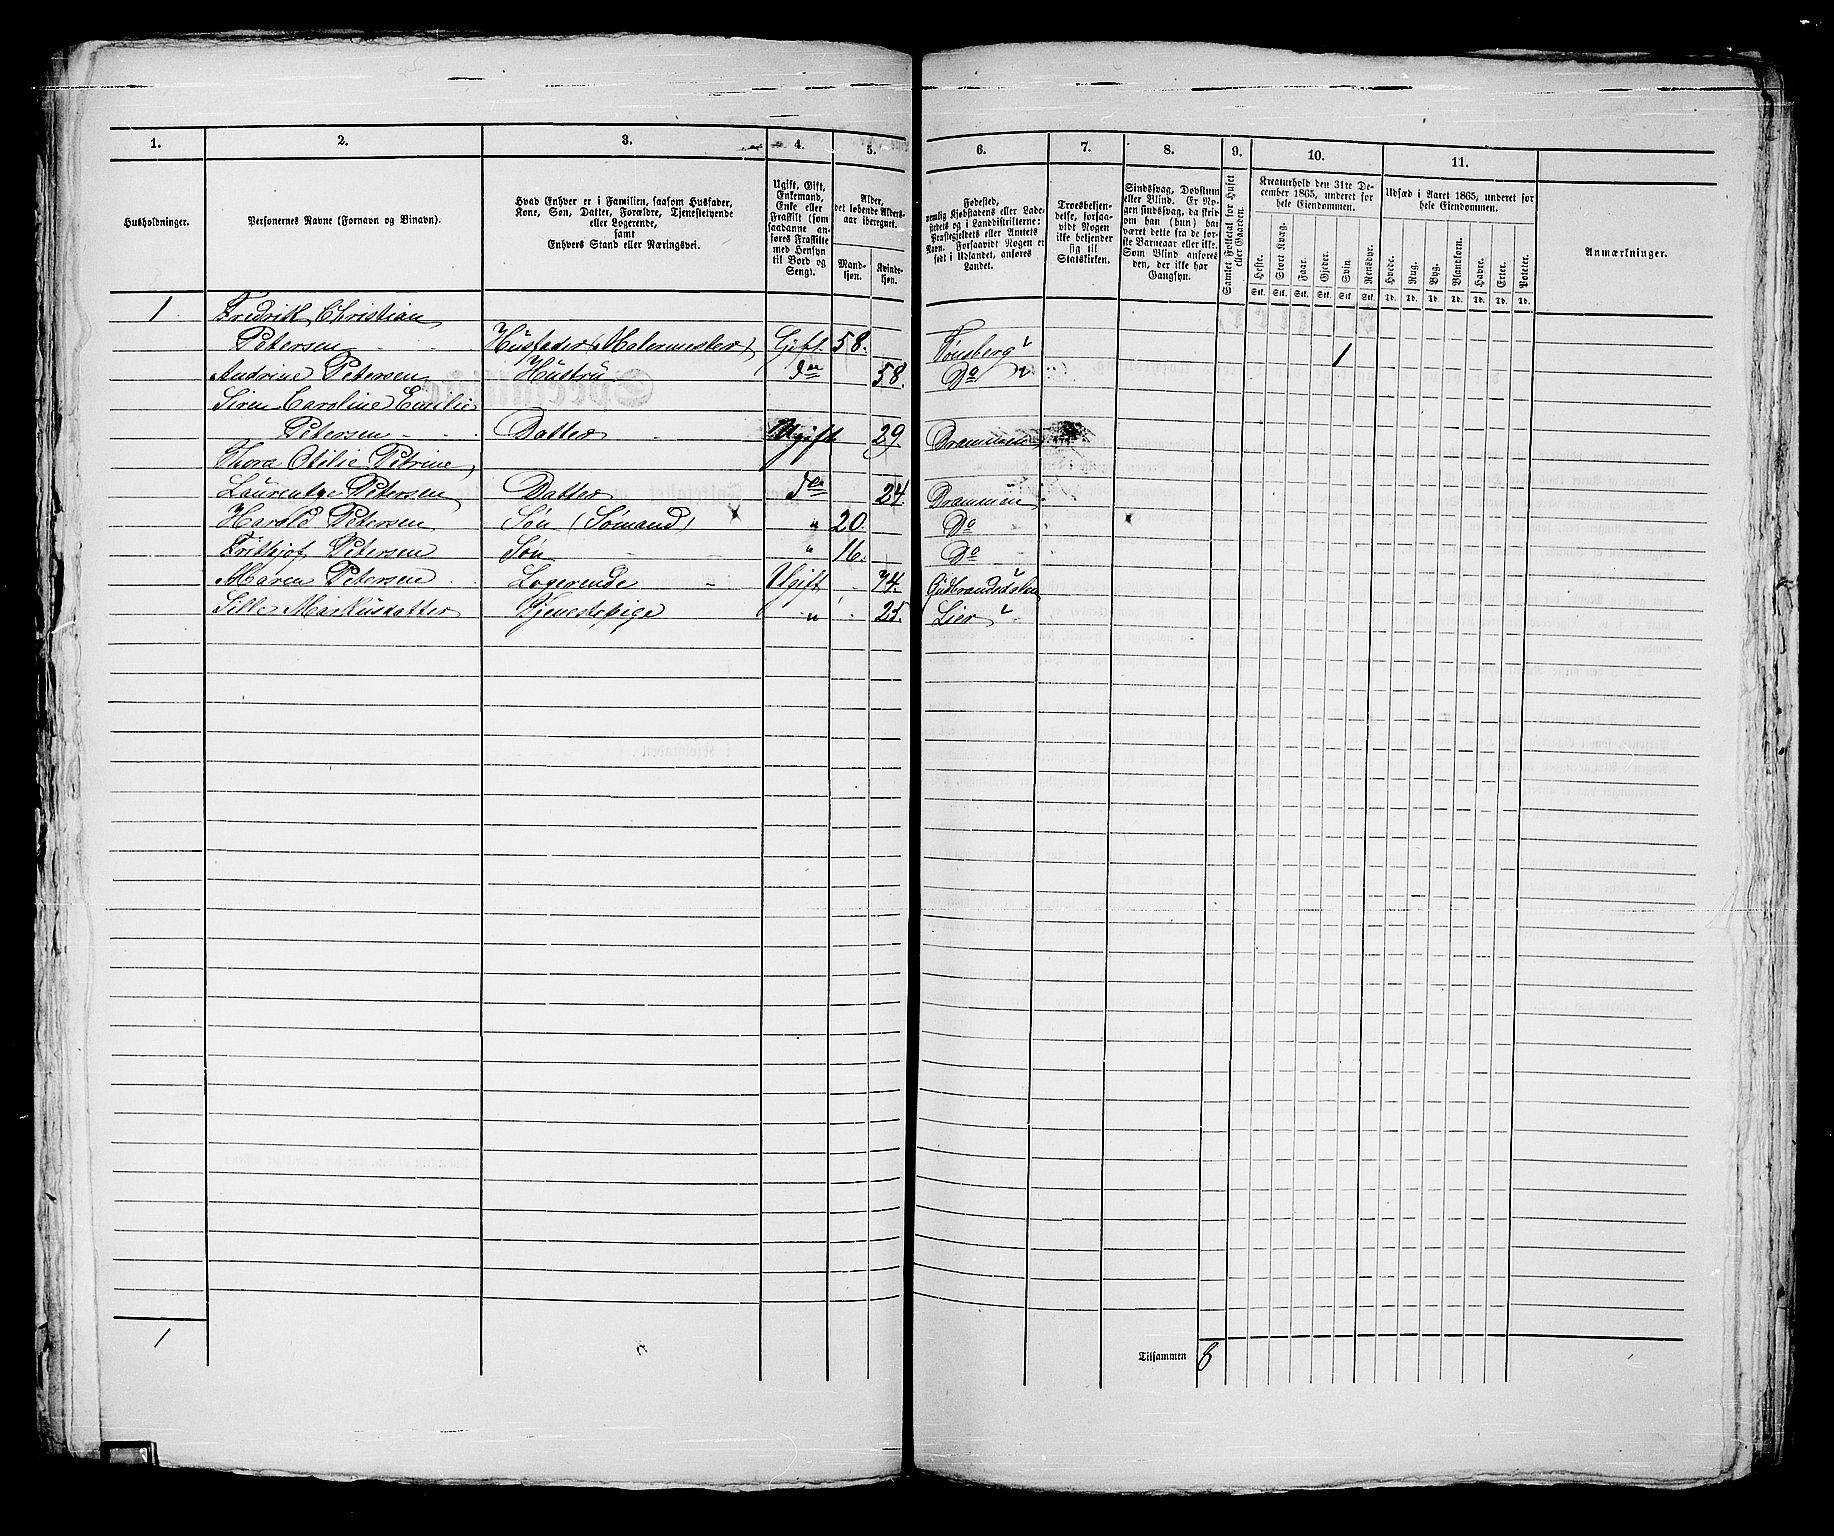 1. 2. 3. 4. 5. 6. 7. 8. 9. 10. 11.
Husholdninger.
Personernes Navne (Fornavn og Binavn).
Hvad Enhver er i Familien, saasom Husfader,
Kone, Søn, Datter, Forældre, Tjenestetyende
eller Logerende,
samt
Enhvers Stand eller Næringsvei.
Ugift, Gift,
Enkemand,
Enke eller
Fraskilt (som
saadanne an-
føres Fraskilte
med Hensyn
til Bord og
Seng).
Alder,
det løbende Alders-
aar iberegnet.
Mand-
kjøn.
Kvinde-
kjøn.
Fødested,
nemlig Kjøbstadens eller Lade-
stedets og i Landdistrikterne:
Præstegjeldets eller Amtets
Navn. Forsaavidt Nogen er
født i Udlandet, anføres
Landet.
Troesbekjen-
delse, forsaa-
vidt Nogen
ikke bekjender
sig til
Statskirken.
Sindssvag, Døvstum
eller Blind. Er No-
gen sindssvag, da skriv
om han (hun) har
været dette fra de før-
ste Barneaar eller ikke.
Som Blind anføres
den, der ikke har
Gangsyn.
Samlet Folketal for Huset
eller Gaarden.
Kreaturhold den 31te De-
cember 1865, underet for
hele Eiendommen.
Heste. Stort Kvæg. Faar. Gjeder. Svin. Rensdyr.
Stk. Stk. Stk. Stk. Stk. Stk.
Udsæd i Aaret 1865, underet for
hele Eiendommen.
Hvede. Rug. Byg. Blandkorn. Havre. Erter. Poteter.
Td. Td. Td. Td. Td. Td. Td.
Anmærkninger.
1 Fredrik Christian
Petersen Husfader (Malermester) Gift 58. Tønsberg 1
Andrine Petersen Hustru do 58. Do
Siren Caroline Emilie
Petersen Datter Ugift 29 Drammen
Thora Otilie Petrine
Laurentze Petersen Datter do 24. Drammen
Harold Petersen Søn (Sømand) " 20. Do
Frithjof Petersen Søn " 16. Do
Maren Petersen Logerende Ugift 74. Gudbrandsdalen
Sille Markusdatter Tjenestepige " 25. Lier
1 Tilsammen 8